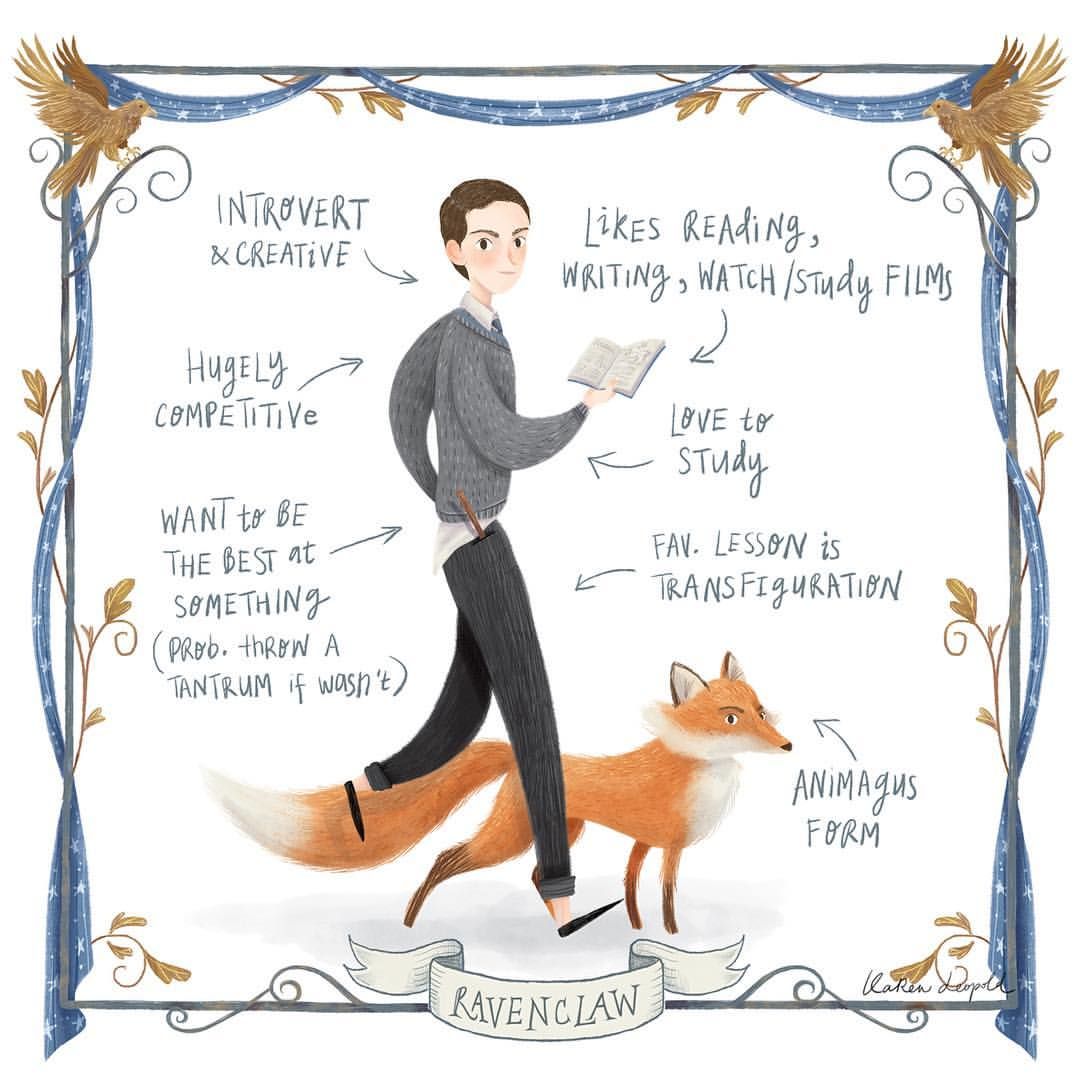 INTROVERT
& CREATIVE
LIKES READING,
WRITING, WATCH/STUDY FILMS
HUGELY
COMPETITIVE
LOVE to
STUDY
WANT to BE
THE BEST at
SOMETHING
(PROB. THROW A
TANTRUM if wasn't)
FAV. LESSON is
TRANSFIGURATION
ANIMAGUS
FORM
RAVENCLAW
Karen Leopold